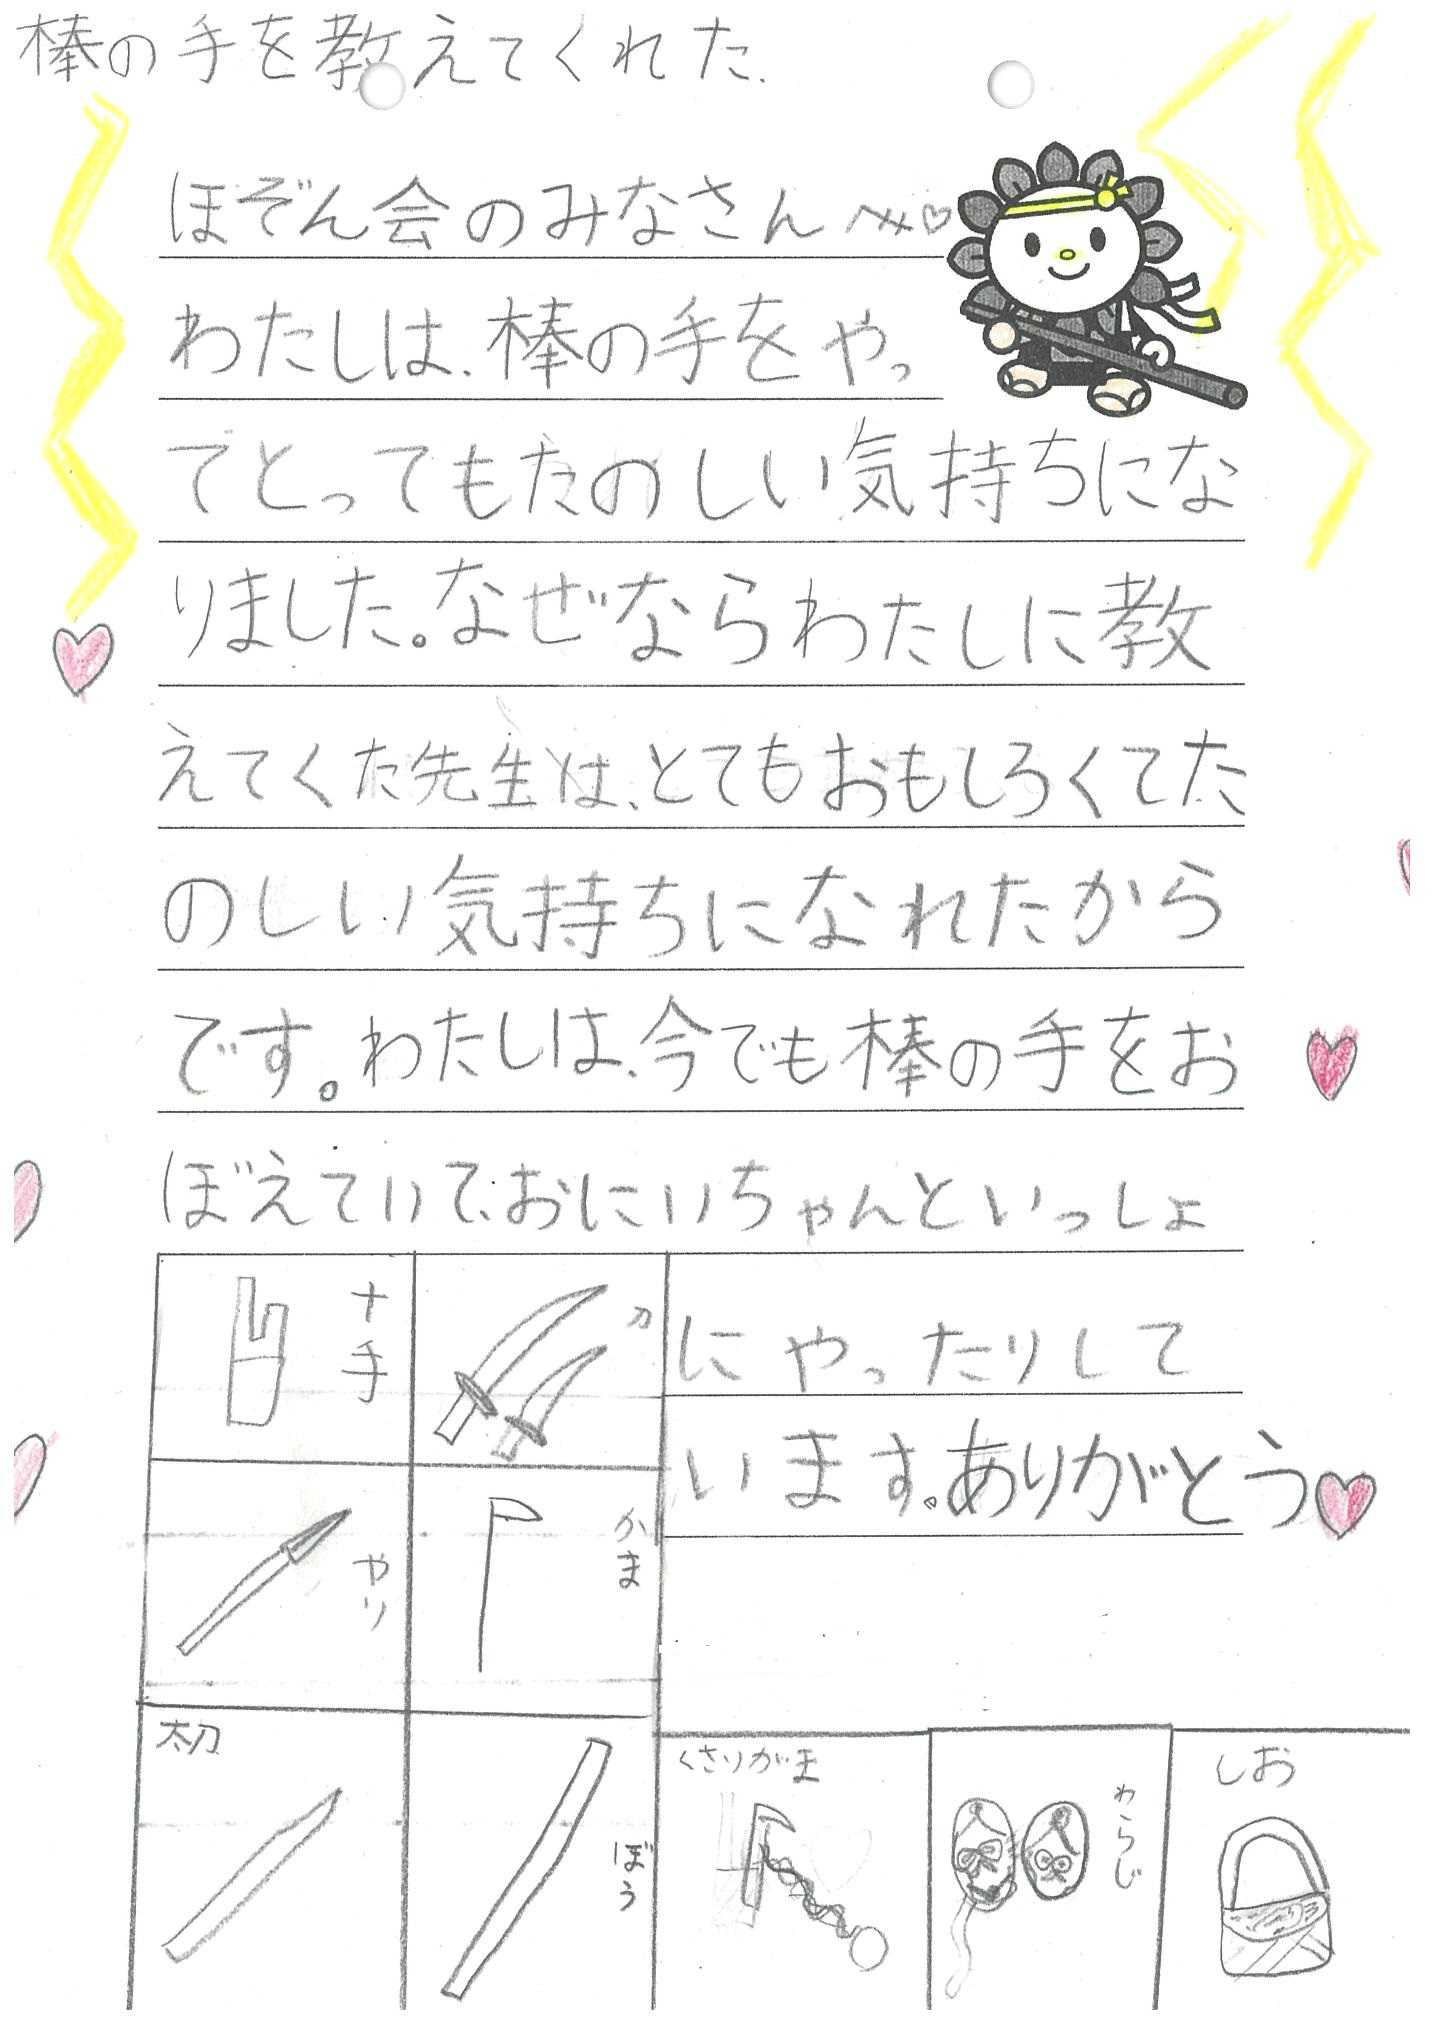 棒の手を教えてくれた.
ほぞん会のみなさんへ
わたしは、棒の手をやっ
てとってもたのしい気持ちにな
りました。なぜならわたしに教
えてくた先生は、とてもおもしろくてた
のしい気持ちになれたから
です。わたしは、今でも棒の手をお
ぼえていて、おにいちゃんといっしょ
にやったりして
います。ありがとう
十手
刀
やり
かま
太刀
ぼう
くさりがま
わらじ
しお